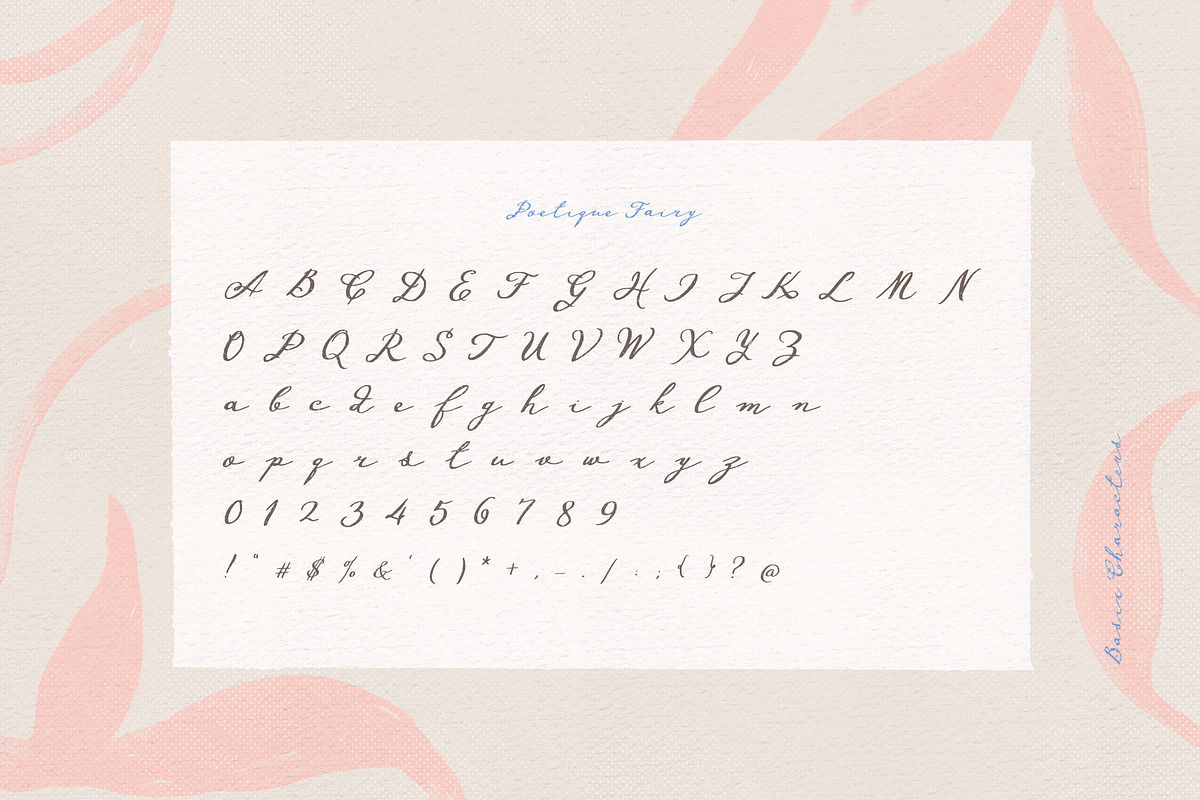 Poetique Fairy
A B C D E F G H I J K L M N
O P Q R S T U V W X Y Z
a b c d e f g h i j k l m n
o p q r s t u v w x y z
0 1 2 3 4 5 6 7 8 9
! " # $ % & ' ( ) * + , - . / : ; { } ? @
Basix Characters